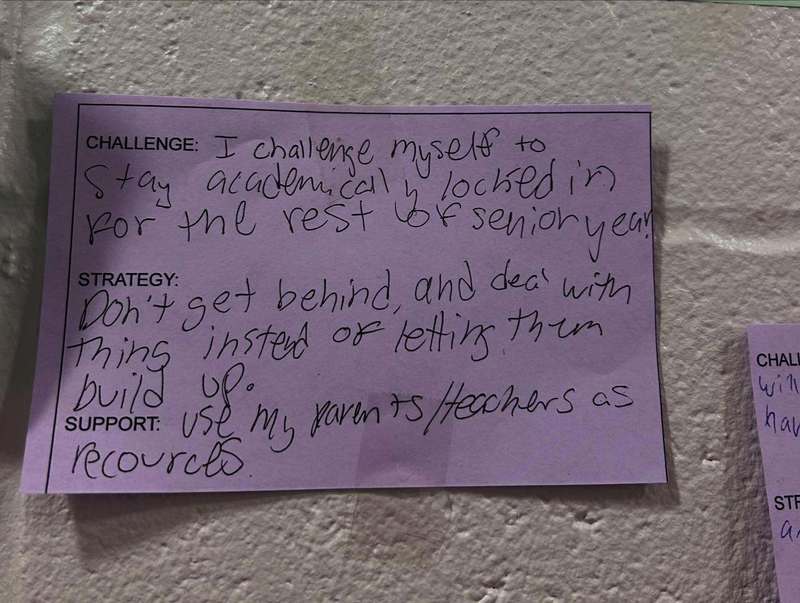 CHALLENGE: I challenge myself to
stay academically locked in
for the rest of senior year.
STRATEGY:
Don't get behind, and deal with
thing instead of letting them
build up.
SUPPORT: use my parents/teachers as
recources.
CHALL
will
hav
STR